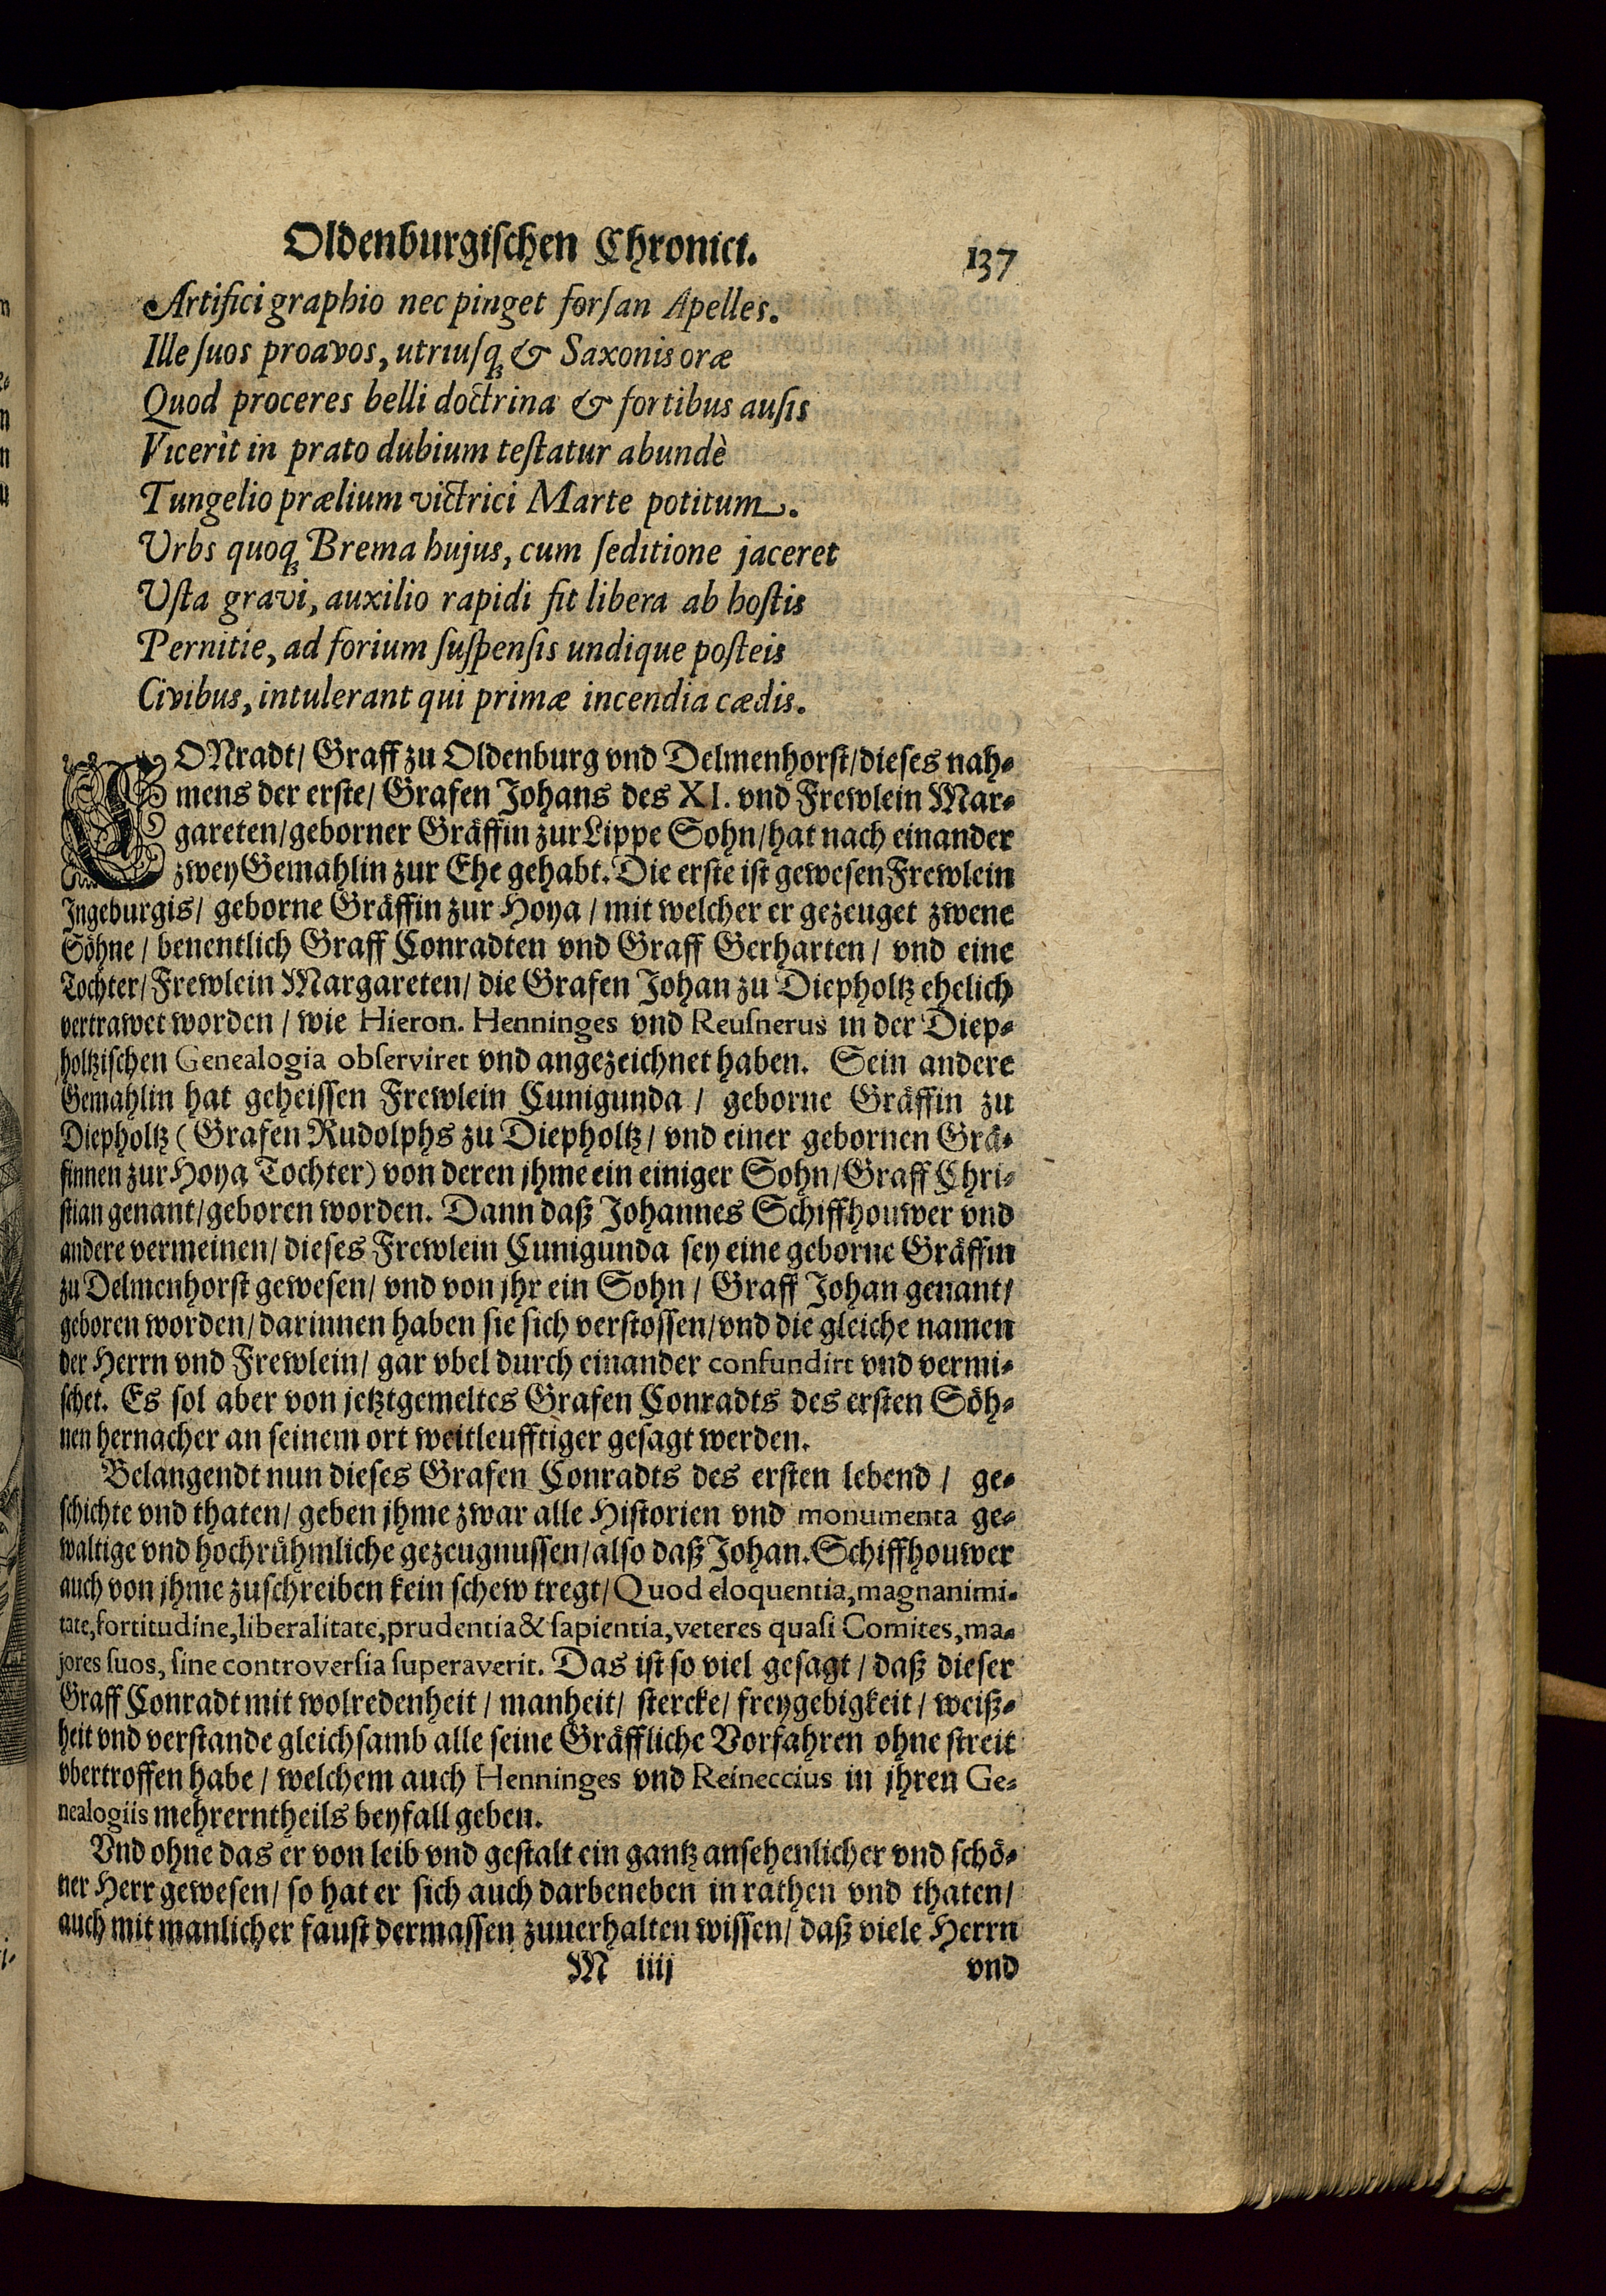 Oldenburgischen Chronici. 137
Artifici graphio nec pinget forsan Apelles.
Ille suos proavos, utriusq; & Saxonis oræ
Quod proceres belli doctrina & fortibus ausis
Vicerit in prato dubium testatur abundè
Tungelio prælium victrici Marte potitum.
Vrbs quoq; Brema hujus, cum seditione jaceret
Vsta gravi, auxilio rapidi fit libera ab hostis
Pernitie, ad forium suspensis undique posteis
Civibus, intulerant qui primæ incendia cædis.
CONradt/ Graff zu Oldenburg vnd Delmenhorst/ dieses nah-
mens der erste/ Grafen Johans des XI. vnd Frewlein Mar-
gareten/ geborner Gräffin zur Lippe Sohn/ hat nach einander
zwey Gemahlin zur Ehe gehabt. Die erste ist gewesen Frewlein
Ingeburgis/ geborne Gräffin zur Hoya/ mit welcher er gezeuget zwene
Söhne/ benentlich Graff Conradten vnd Graff Gerharten/ vnd eine
Tochter/ Frewlein Margareten/ die Grafen Johan zu Diepholtz ehelich
vertrawet worden/ wie Hieron. Henninges vnd Reusnerus in der Diep-
holtzischen Genealogia observiret vnd angezeichnet haben. Sein andere
Gemahlin hat geheissen Frewlein Cunigunda/ geborne Gräffin zu
Diepholtz (Grafen Rudolphs zu Diepholtz/ vnd einer gebornen Grä-
finnen zur Hoya Tochter) von deren jhme ein einiger Sohn/ Graff Chri-
stian genant/ geboren worden. Dann daß Johannes Schiffhouwer vnd
andere vermeinen/ dieses Frewlein Cunigunda sey eine geborne Gräffin
zu Delmenhorst gewesen/ vnd von jhr ein Sohn/ Graff Johan genant/
geboren worden/ darinnen haben sie sich verstossen/ vnd die gleiche namen
der Herrn vnd Frewlein/ gar vbel durch einander confundirt vnd vermi-
schet. Es sol aber von jetztgemeltes Grafen Conradts des ersten Söh-
nen hernacher an seinem ort weitleufftiger gesagt werden.
Belangendt nun dieses Grafen Conradts des ersten lebend/ ge-
schichte vnd thaten/ geben jhme zwar alle Historien vnd monumenta ge-
waltige vnd hochrühmliche gezeugnussen/ also daß Johan. Schiffhouwer
auch von jhme zuschreiben kein schew tregt/ Quod eloquentia, magnanimi-
tate, fortitudine, liberalitate, prudentia & sapientia, veteres quasi Comites, ma-
jores suos, sine controversia superaverit. Das ist so viel gesagt/ daß dieser
Graff Conradt mit wolredenheit/ manheit/ stercke/ freygebigkeit/ weiß-
heit vnd verstande gleichsamb alle seine Gräffliche Vorfahren ohne streit
vbertroffen habe/ welchem auch Henninges vnd Reineccius in jhren Ge-
nealogiis mehrerntheils beyfall geben.
Vnd ohne das er von leib vnd gestalt ein gantz ansehenlicher vnd schö-
ner Herr gewesen/ so hat er sich auch darbeneben in rathen vnd thaten/
auch mit manlicher faust dermassen zuuerhalten wissen/ daß viele Herrn
M iiij vnd